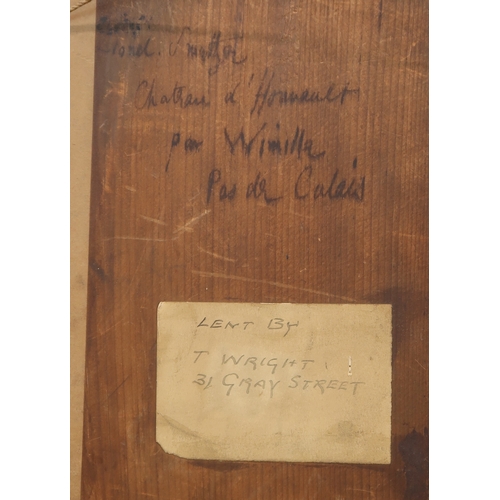 Lionel. Smythe
Chateau d'Honvault
par Wimille
Pas de Calais
LENT BY
T WRIGHT.
31 GRAY STREET